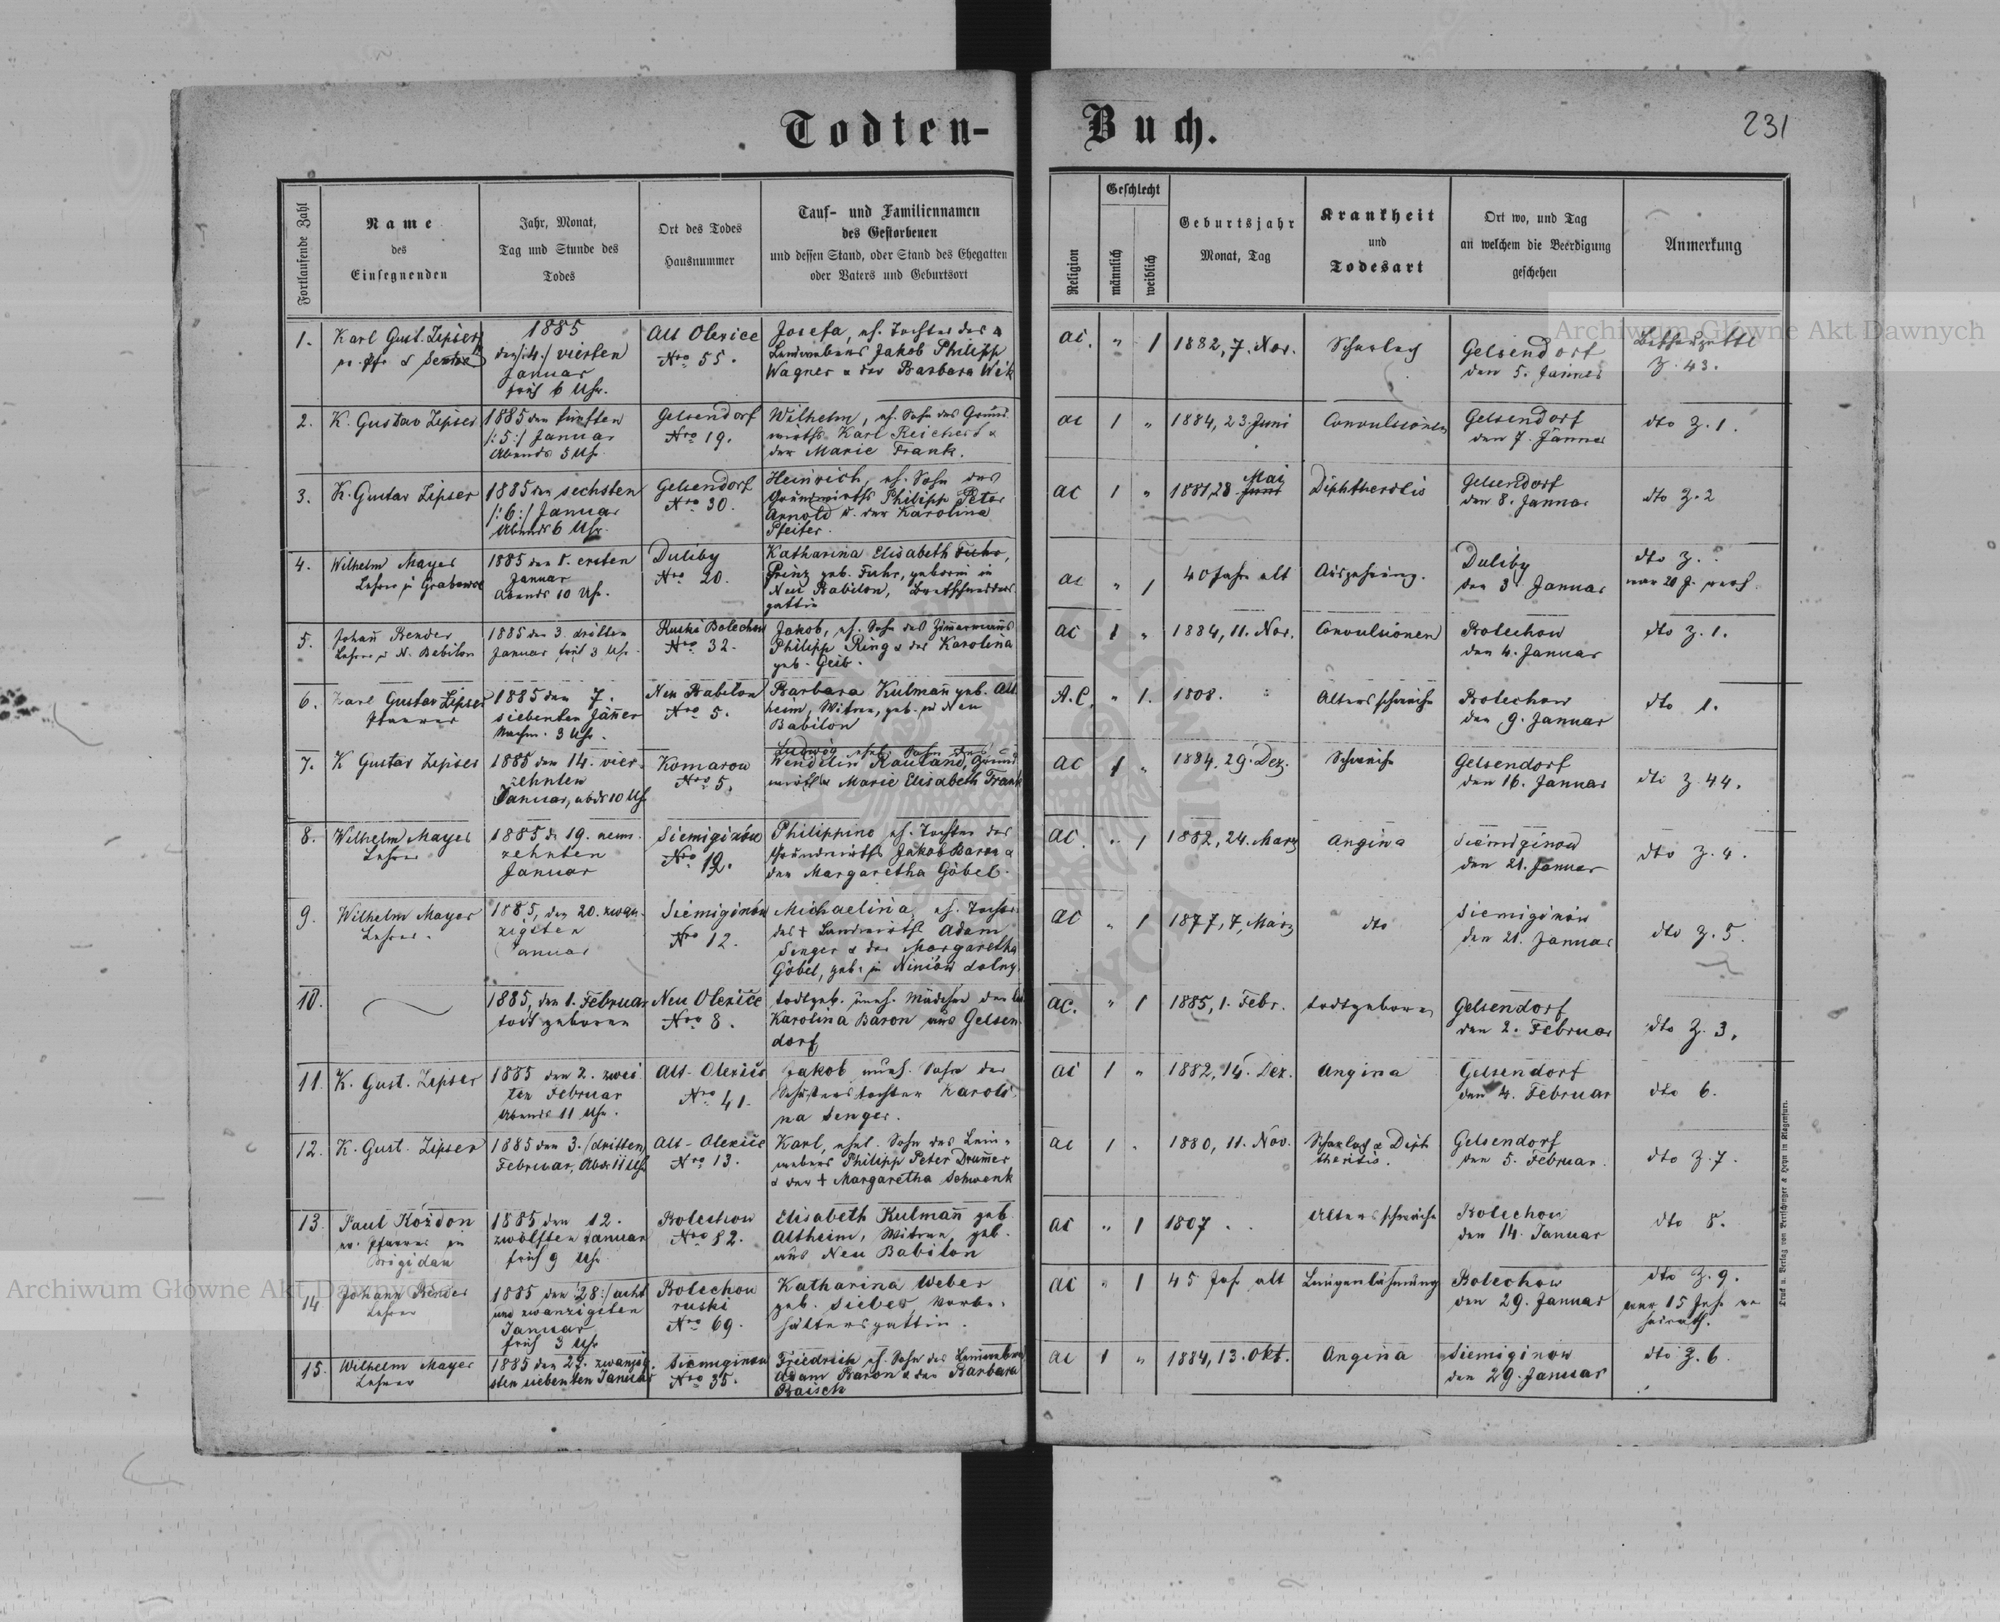 Todten- Buch.
231
Fortlaufende Zahl
Name
des
Einsegnenden
Jahr, Monat,
Tag und Stunde des
Todes
Ort des Todes
Hausnummer
Tauf- und Familiennamen
des Gestorbenen
und dessen Stand, oder Stand des Ehegatten
oder Vaters und Geburtsort
Religion
Geschlecht
männlich
weiblich
Geburtsjahr
Monat, Tag
Krankheit
und
Todesart
Ort wo, und Tag
an welchem die Beerdigung
geschehen
Anmerkung
1.
Karl Gust. Zipser
1885
den /:4:/ vierten
Januar
früh 6 Uhr.
Alt Olexice
Nro 55.
Josefa, eh. Tochter des
Leinwebers Jakob Philipp
Wagner u der Barbara Wik
ac. " 1
1882, 7. Nov.
Scharlach
Gelsendorf
den 5. Jänner
Z. 43.
2.
K. Gustav Zipser
1885 den fünften
/:5:/ Januar
Abends 5 Uhr
Gelsendorf
Nro 19.
Wilhelm, eh. Sohn des Grund
wirths Karl Reichert u
der Marie Frank.
ac 1 "
1884, 23. Juni
Convulsionen
Gelsendorf
den 7. Jänner
dto Z. 1.
3.
K. Gustav Zipser
1885 den sechsten
/:6:/ Januar
Abends 6 Uhr.
Gelsendorf
Nro 30.
Heinrich, eh. Sohn des
Grundwirths Philipp Peter
Arnold u. der Karolina
Pfeifer.
ac 1 "
Mai
1881, 28. Juni
Diphtheritis
Gelsendorf
den 8. Januar
dto Z. 2
4.
Wilhelm Mayer
1885 den 1. ersten
Januar
Abends 10 Uhr.
Duliby
Nro 20.
Katharina Elisabeth Fuhr,
Prinz geb. Fuhr, geboren in
Neu Babilon, Brettschneiders
gattin
ac " 1
40 Jahr alt
Auszehrung.
Duliby
den 3. Januar
dto Z.
war 20 J. verh.
5.
Johann Bender
Lehrer in N. Babilon
1885 den 3. dritten
Januar früh 3 Uhr.
Ruski Bolechow
Nro 32.
Jakob, eh. Sohn des Zimmermanns
Philipp Ring u der Karolina
geb. Geib.
ac 1 "
1884, 11. Nov.
Convulsionen
Bolechow
den 4. Januar
dto Z. 1.
6.
Karl Gustav Zipser
Pfarrer
1885 den 7.
siebenten Jänner
Nachm. 3 Uhr.
Neu Babilon
Nro 5.
Barbara Kulmann geb. Alt
heim, Witwe, geb. in Neu
Babilon
A.C. " 1.
1808.
Altersschwäche
Bolechow
den 9. Januar
dto 1.
7.
K Gustav Zipser
1885 den 14. vier-
zehnten
Januar, abds 10 Uhr
Komarow
Nro 5.
Ludwig ehel. Sohn des
Wendelin Rauland, Grund
wirths u Marie Elisabeth Frank
ac 1 "
1884, 29. Dez.
Schwäche
Gelsendorf
den 16. Januar
dto Z. 44.
8.
Wilhelm Mayer
Lehrer
1885 d. 19. neun-
zehnten
Januar
Siemiginów
Nro 12.
Philippine eh. Tochter des
Grundwirths Jakob Baron u
der Margaretha Göbel.
ac. " 1
1882, 24. März
Angina
Siemiginow
den 21. Januar
dto Z. 4.
9.
Wilhelm Mayer
Lehrer.
1885, den 20. zwan-
zigsten
Januar
Siemiginów
Nro 12.
Michaelina, eh. Tochter
des + Landwirths Adam
Senger u der Margaretha
Göbel, geb. in Niniów dolny
ac " 1
1877, 7. März
dto
Siemiginów
den 21. Januar
dto Z. 5.
10.
1885, den 1. Februar
todt geboren
Neu Olexice
Nro 8.
todtgeb. uneh. Mädchen der led
Karolina Baron aus Gelsen
dorf
ac. " 1
1885, 1. Febr.
todtgeboren
Gelsendorf
den 2. Februar
dto Z. 3.
11.
K. Gust. Zipser
1885 den 2. zwei
ten Februar
Abends 11 Uhr.
Alt-Olexice
Nro 41.
Jakob uneh. Sohn der
Schusterstochter Karoli
na Senger.
ac 1 "
1882, 14. Dez.
Angina
Gelsendorf
den 4. Februar
dto 6.
12.
K. Gust. Zipser
1885 den 3. /dritten/
Februar, Abds 11 Uhr
Alt-Olexice
Nro 13.
Karl, ehel. Sohn des Lein-
webers Philipp Peter Drummer
u der + Margaretha Schwenk
ac 1 "
1880, 11. Nov.
Scharlach u Diph
theritis.
Gelsendorf
den 5. Februar.
dto Z. 7.
13.
Paul Kózdon
ev. Pfarrer in
Brigidau
1885 den 12.
zwölften Januar
früh 9 Uhr
Bolechow
Nro 82.
Elisabeth Kulmann geb
Altheim, Witwe, geb.
aus Neu Babilon
ac " 1
1807
Altersschwäche
Bolechow
den 14. Januar
dto 8.
14
Johann Bender
Lehrer
1885 den 28:/acht
und zwanzigsten
Januar
früh 3 Uhr
Bolechow
ruski
Nro 69.
Katharina Weber
geb. Sieber, Vorbe-
hältersgattin.
ac " 1
45 Jah. alt
Lungenlähmung
Bolechow
den 29. Januar
dto Z. 9.
war 15 Jah. ve
heirath.
15.
Wilhelm Mayer
Lehrer
1885 den 27. zwanzig-
sten siebenten Januar
Siemiginow
Nro 35.
Friedrich eh. Sohn des Leinwebers
Adam Baron u der Barbara
Raisch
ac 1 "
1884, 13. Okt.
Angina
Siemiginow
den 29. Januar
dto Z. 6.
Druck u. Verlag von Bertschinger & Heyn in Klagenfurt.
Archiwum Główne Akt Dawnych
Archiwum Główne Akt Dawnych